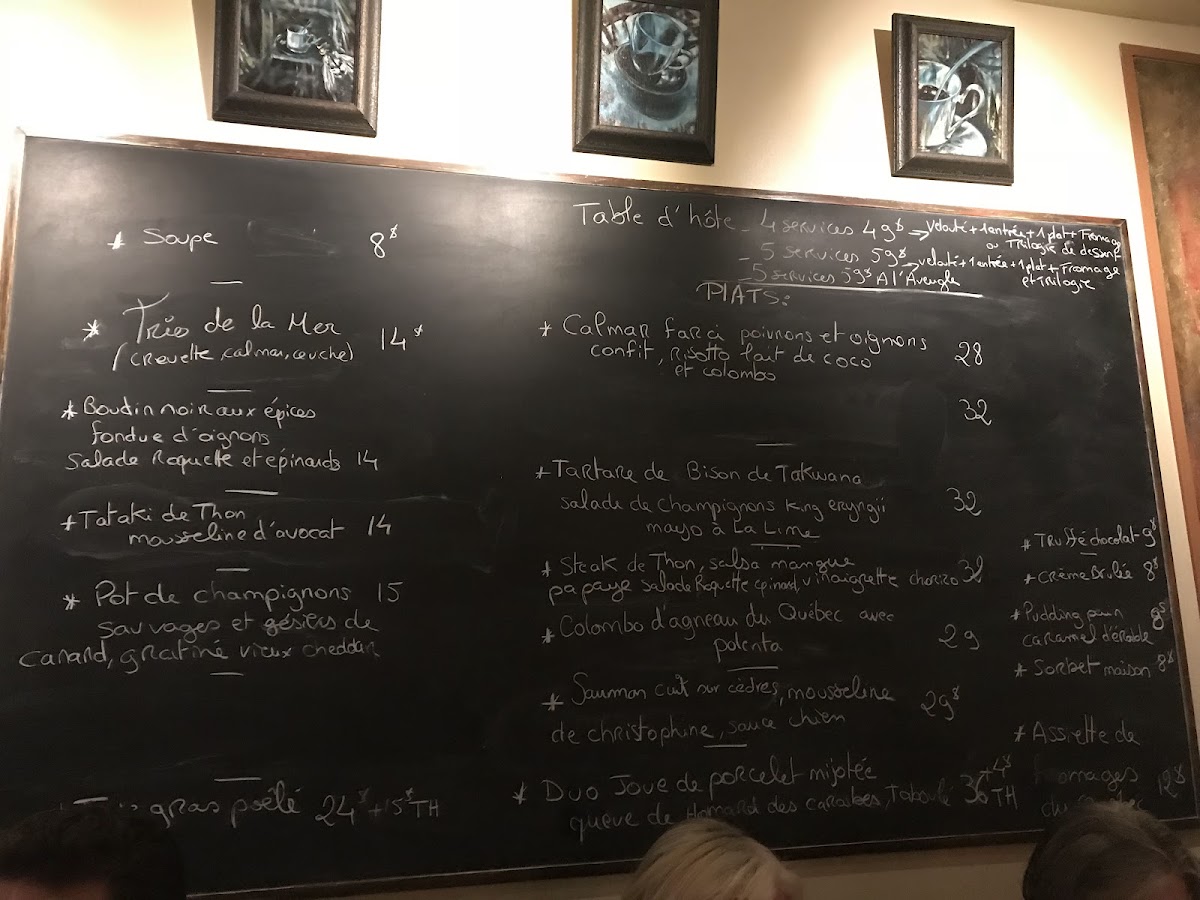 * Soupe 8$
* Trio de la Mer 14$
(crevette, calmar, ceviche)
* Boudin noir aux épices
fondue d'oignons
Salade Roquette et épinards 14
* Tataki de Thon
mousseline d'avocat 14
* Pot de champignons 15
sauvages et gésiers de
canard, gratiné vieux cheddar
gras poêlé 24$ +15$ TH
Table d'hôte - 4 services 49$ → Velouté + 1 entrée + 1 plat + Fromage
ou Trilogie de dessert
- 5 services 59$ → velouté + 1 entrée + 1 plat + Fromage
et Trilogie
- 5 services 59$ A l'Aveugle
PLATS:
* Calmar farci poivrons et oignons
confit, risotto lait de coco 28
et colombo
32
* Tartare de Bison de Takwana
salade de champignons king eryngii 32
mayo à La Lime
* Steak de Thon, salsa mangue
papaye salade Roquette epinard, vinaigrette chorizo 32
* Colombo d'agneau du Québec avec
polenta 29
* Saumon cuit sur cèdres, mousseline
de christophine, sauce chien 29$
* Duo Joue de porcelet mijotée
queue de Homard des caraibes, Taboulé 36 +4$ TH
* Truffé chocolat 9$
* Crème Brulée 8$
* Pudding pain
caramel d'érable 9$
* Sorbet maison 8$
* Assiette de
fromages
du 12$